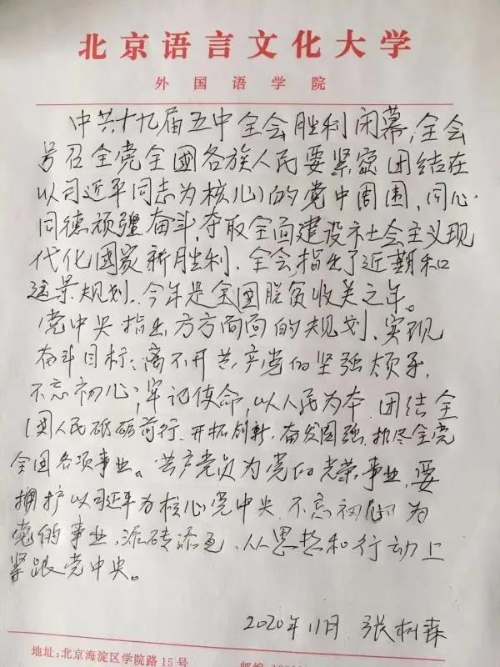 北京语言文化大学
外国语学院
中共十九届五中全会胜利闭幕,全会
号召全党全國各族人民要紧密团结在
以习近平同志为核心的党中周围,同心
同德顽强奋斗,夺取全面建设社会主义现
代化國家新胜利.全会指出了近期和
远景规划.今年是全国脱贫收关之年。
党中央指出方方面面的规划、实现
奋斗目标:离不开共产党的坚强领导,
不忘初心;牢记使命,以人民为本 团结全
国人民砥砺前行.开拓创新.奋发图强.推尽全党
全国各项事业。共产党员为党的荣荣事业,要
拥护以习近平为核心党中央.不忘初心为
党的事业,添砖添瓦、从思想和行动上
紧跟党中央。
2020年11月 张树森
地址:北京海淀区学院路15号
邮编